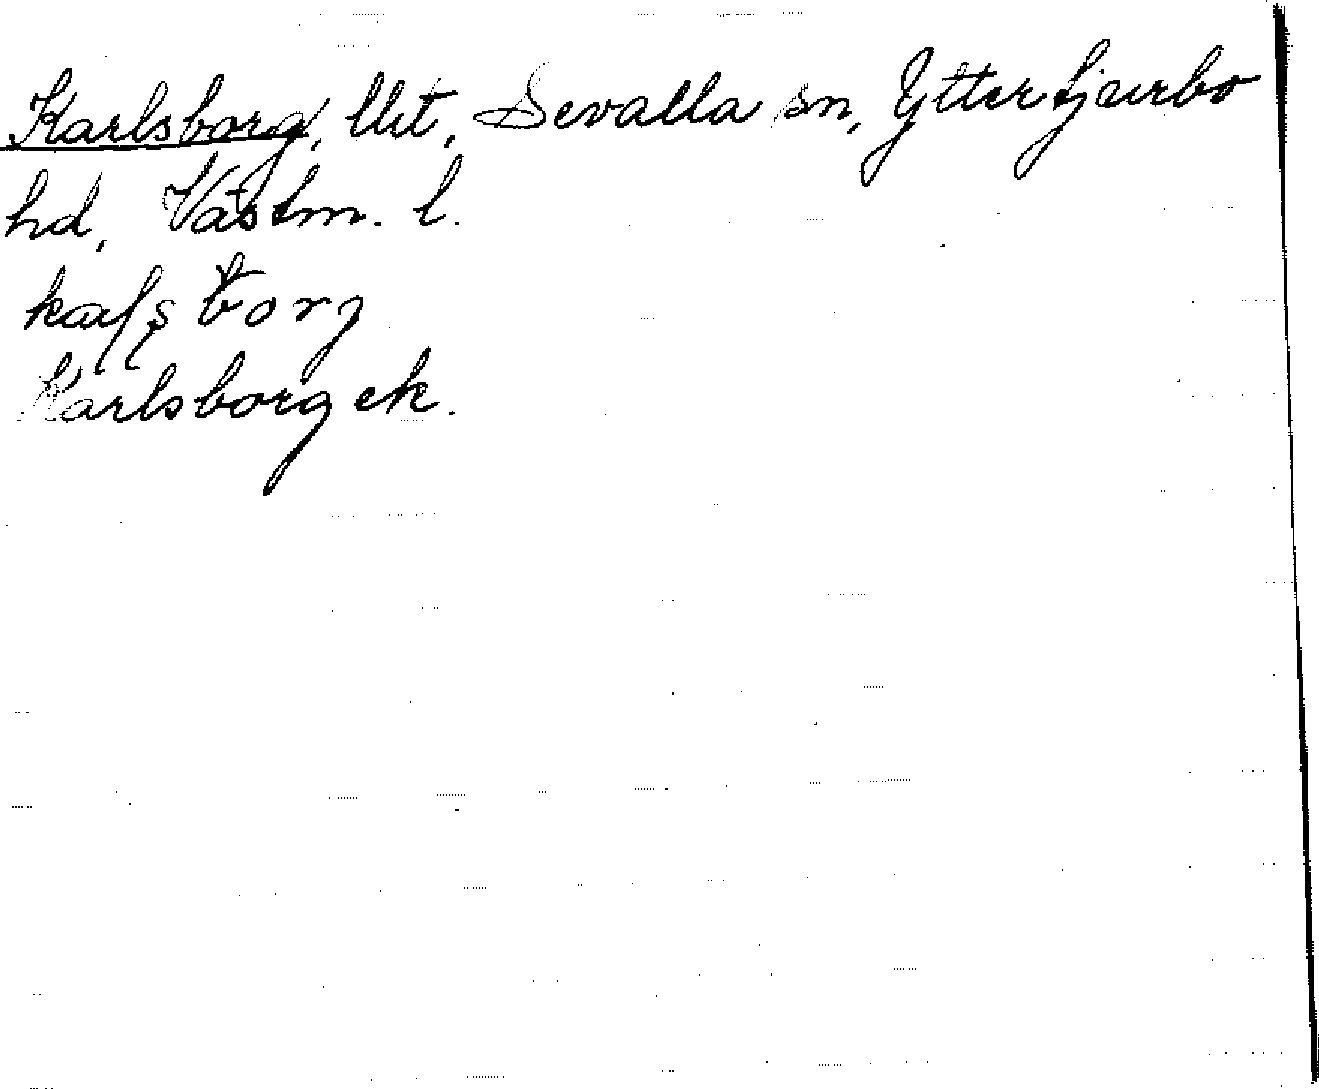 Karlsborg, lht, Sevalla sn, Yttertjurbo
hd, Västm. l.
Karlsborg ek.